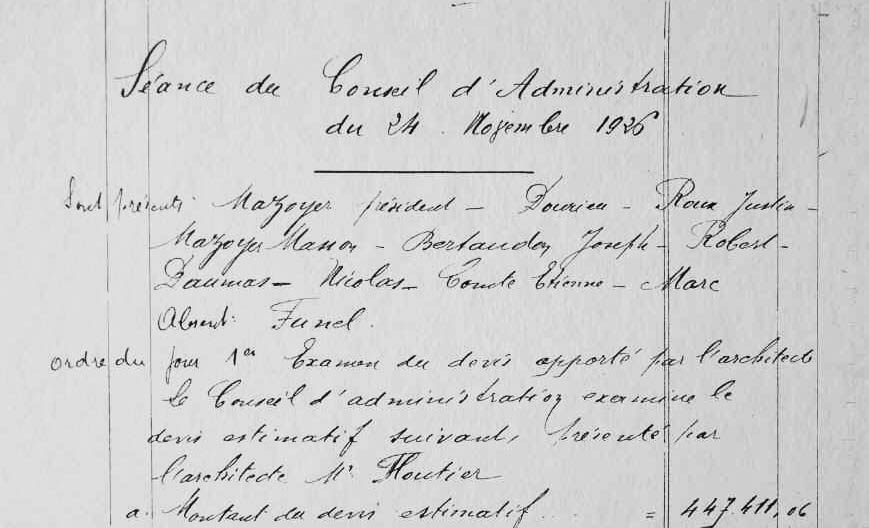 Séance du Conseil d'Administration
du 24 Novembre 1926
Sont présents: Mazoyer président - Dourieu - Roux Justin -
Mazoyer Masson - Bertaudon Joseph - Robert -
Daumas - Nicolas - Comte Etienne - Marc
Absent: Funel.
ordre du jour 1er Examen du devis apporté par l'architecte
le Conseil d'administration examine le
devis estimatif suivant, présenté par
l'architecte Mr Floutier
a. Montant du devis estimatif ... = 447.411,06